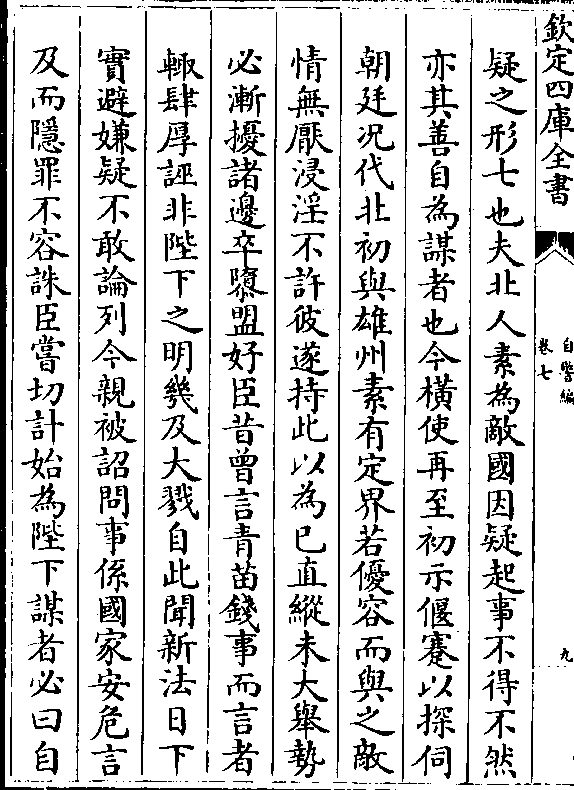 欽定四庫全書
自警編
卷七
九
疑之形七也夫北人素為敵國因疑起事不得不然
亦其善自為謀者也今橫使再至初示偃蹇以探伺
朝廷况代北初與雄州素有定界若優容而與之敵
情無厭浸淫不許彼遂持此以為已直縱未大舉勢
必漸擾諸邊卒隳盟好臣昔曾言青苗錢事而言者
輙肆厚誣非陛下之明幾及大戮自此聞新法日下
實避嫌疑不敢論列今親被詔問事係國家安危言
及而隱罪不容誅臣嘗切計始為陛下謀者必曰自